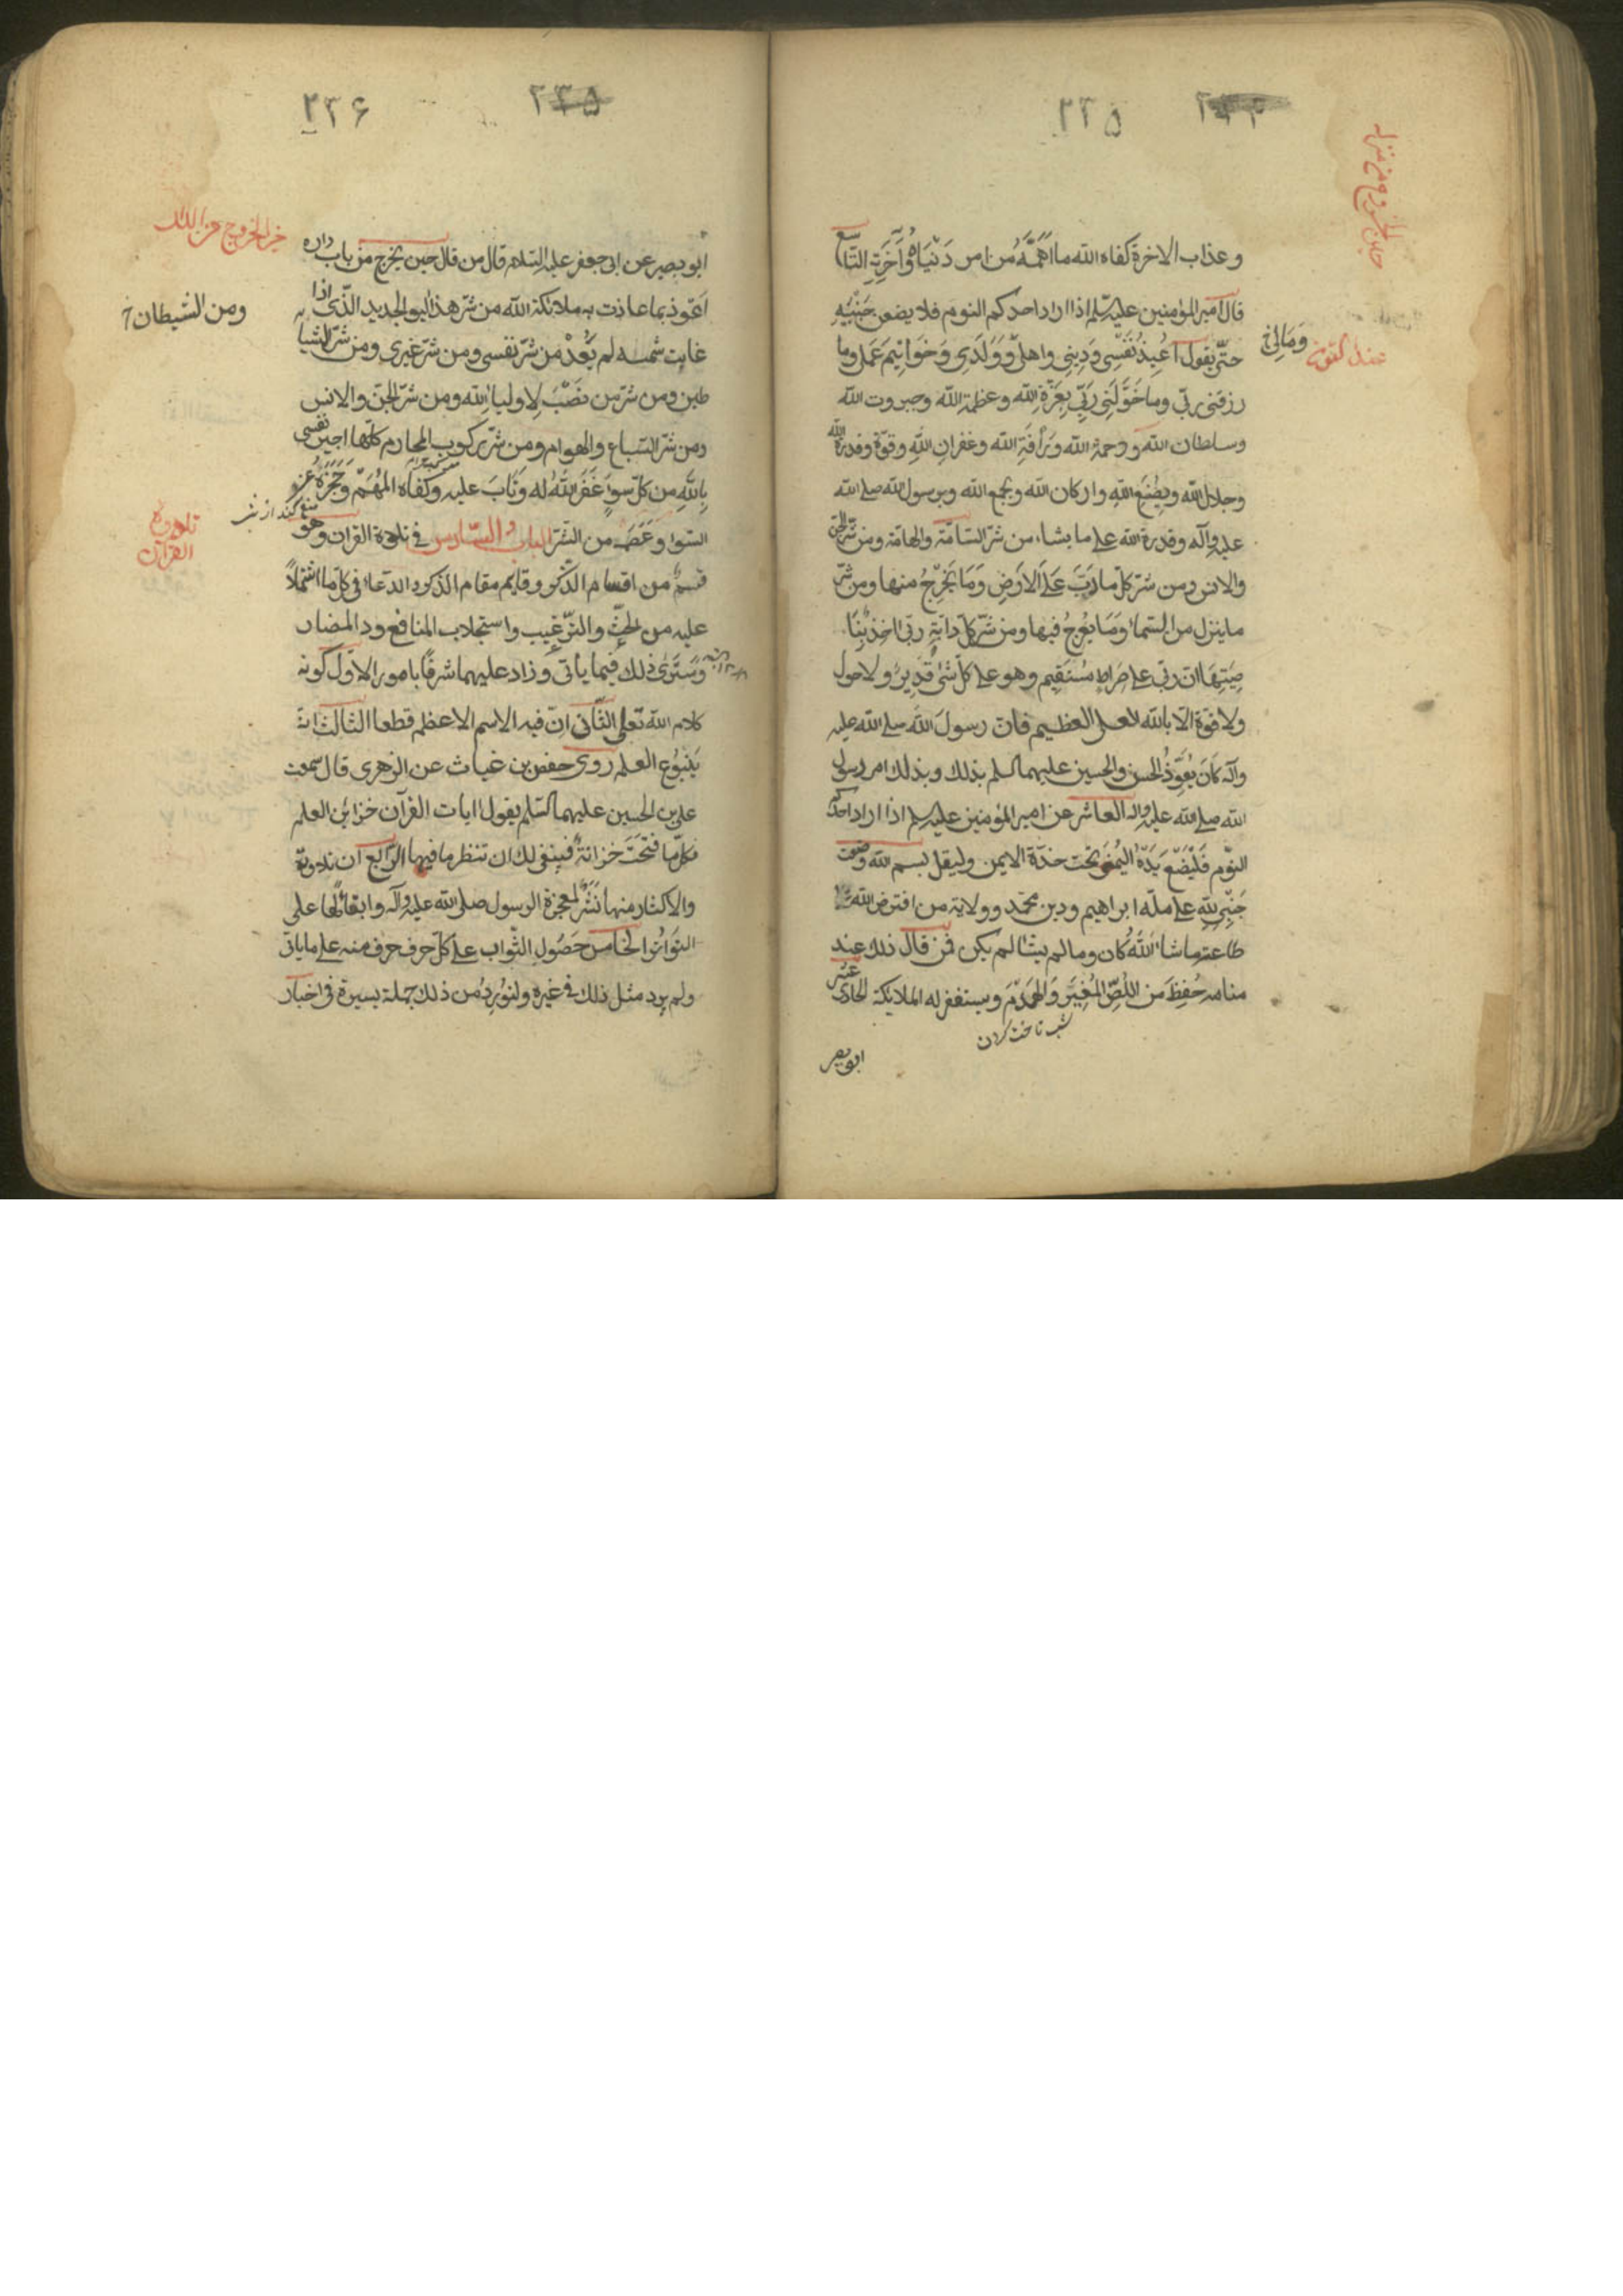 ۲۳۵
وعذاب الاخرة كفاه الله ما اَهَمَّهُ من امر دنياه وَآخِرَتِهِ التاسع
قال امير المؤمنين عليه السلم اذا اراد احدكم النوم فلا يضعن جَنْبَيْهِ
حتّى يقول اُعِيذُ نَفْسِى وَدِينِى واهلى وَوَلَدِى وَخَوَاتِيمَ عَمَلى وما
وَمَالِى خ
عند النوم
رزقنى ربّى وما خَوَّلَنِى رَبِّى بِعِزَّةِ الله وعظمة الله وجبروت الله
وسلطان الله ورحمة الله وَرَأفَةِ الله وغفرانِ اللهِ وقوّة وقدرة الله
وجلال الله وبِصُنْعِ اللهِ واركان الله وبجمع الله وبرسول الله صلى الله
عليه وآله وقدرة الله على ما يشاء من شرّ السّامّة والهامّة ومن شرّ الجن
والانس ومن شرّ كلّ ما دَبَّ عَلَى الاَرْضِ وَمَا يَخْرُجُ منها ومن شرّ
ما ينزل من السّماء وَمَا يَعْرُجُ فيها ومن شرّ كلّ دابّةٍ ربّى اخِذٌ بِنَا
صِيَتِهَا انّ ربّى على صِراطٍ مُسْتَقِيم وهو على كلّ شىءٍ قَدِيرٌ ولا حول
ولا قوّة الّا بالله العلى العظيم فانّ رسولَ الله صلى الله عليه
وآله كانَ يُعَوِّذُ الحسن والحسين عليهما السلم بذلك وبذلك امر رسول
الله صلى الله عليه واله العاشر عن امير المؤمنين عليه السلم اذا اراد احدكم
النّوم فَلْيَضَعْ يَدَهُ اليُمْنى تحت خدّه الايمن وليقل بسم الله وضعت
جَنْبِى لِلّهِ على ملّة ابراهيم ودين محمّد وولاية من افترض الله
طاعته ما شاءَ اللهُ كان وما لم يشأ لم يكن فمن قال ذلك عند
منامه حُفِظَ من اللِّصِّ المُغِيرِ وَالهَدْمَ ويستغفر له الملائكة الحادى عشر
شب تاخت كردن
ابو بصير
۲۳۶
ابو بصير عن ابى جعفر عليه السّلام قال من قال حين يخرج من باب داره
اَعُوذ بما عاذت به ملائكة الله من شرّ هذا اليوم الجديد الّذى اذا
ومن الشيطان
غابت شمسه لم يَعُدْ من شرّ نفسى ومن شرّ غيرى ومن شرّ الشيا
طين ومن شرّ من نَصَبَ لِاولياءِ الله ومن شرّ الجنّ والانس
ومن شرّ السّباع والهوام ومن شرّ ركوب المحارم كلّها اجير نفسى
بِاللهِ من كلّ سوءٍ غَفَرَ اللهُ له وَتَابَ عليه وكفاه المُهِمَّ وَحَجَزَهُ عن
السّوء وَعَصَمَه من الشّرّ الباب السّادس فى تلاوة القران وهو
تلاوة
القران
قِسمٌ من اقسام الذّكر وقايم مقام الذكر والدّعاء فى كلّ ما اشتملا
عليه من الحثّ والتّرغيب واستجلاب المنافع ودفع المضار
وَسَترى ذلك فيما يأتى وزاد عليهما شرفًا بامور الاوّل كونه
كلام الله تعلى الثّانى انّ فيه الاسم الاعظم قطعا الثّالث انّه
يَنْبُوع العلم روى حفص بن غياث عن الزهرى قال سمعت
على بن الحسين عليهما السّلم يقول ايات القرآن خزاين العلم
فكلّما فتحتَ خزانةً فينبغى لك ان تنظر ما فيها الرّابع انّ تلاوته
والاكثار منها نَشْرٌ لمعجزة الرسول صلى الله عليه وآله وابقاءً لها على
التواتر الخامس حُصُول الثّواب على كلّ حرف حرف منه على ما ياتى
ولم يرد مثل ذلك فى غيره ولنورد من ذلك جملة يسيرة فى اخبار